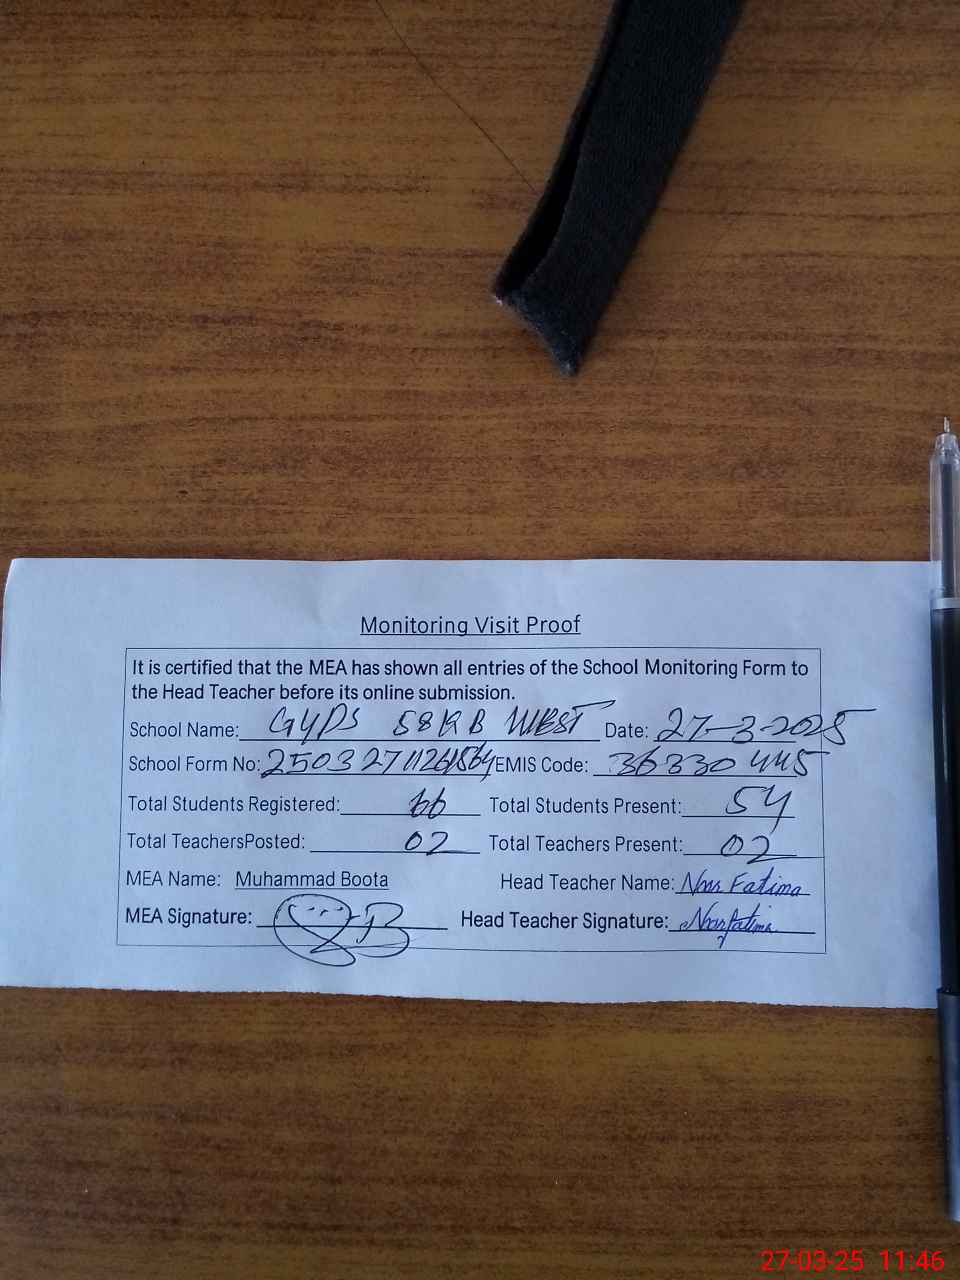 Monitoring Visit Proof
It is certified that the MEA has shown all entries of the School Monitoring Form to
the Head Teacher before its online submission.
School Name: GYPS 58KB WEST Date: 27-3-2025
School Form No: EMIS Code: 36330445
Total Students Registered: 66 Total Students Present: 54
Total TeachersPosted: 02 Total Teachers Present: 02
MEA Name: Muhammad Boota Head Teacher Name: Noor Fatima
MEA Signature: Head Teacher Signature: Noor fatima
27-03-25 11:46